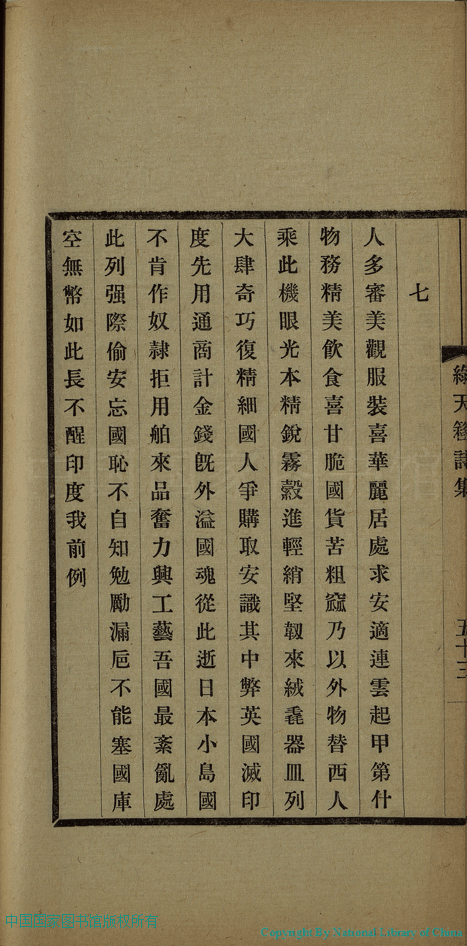 綠天簃詩集
五十三
七
人多審美觀服裝喜華麗居處求安適連雲起甲第什
物務精美飲食喜甘脆國貨苦粗窳乃以外物替西人
乘此機眼光本精銳霧縠進輕綃堅韌來絨毳器皿列
大肆奇巧復精細國人爭購取安識其中弊英國滅印
度先用通商計金錢既外溢國魂從此逝日本小島國
不肯作奴隷拒用舶來品奮力興工藝吾國最紊亂處
此列强際偷安忘國恥不自知勉勵漏巵不能塞國庫
空無幣如此長不醒印度我前例
中国国家图书馆版权所有
Copyright By National Library of China